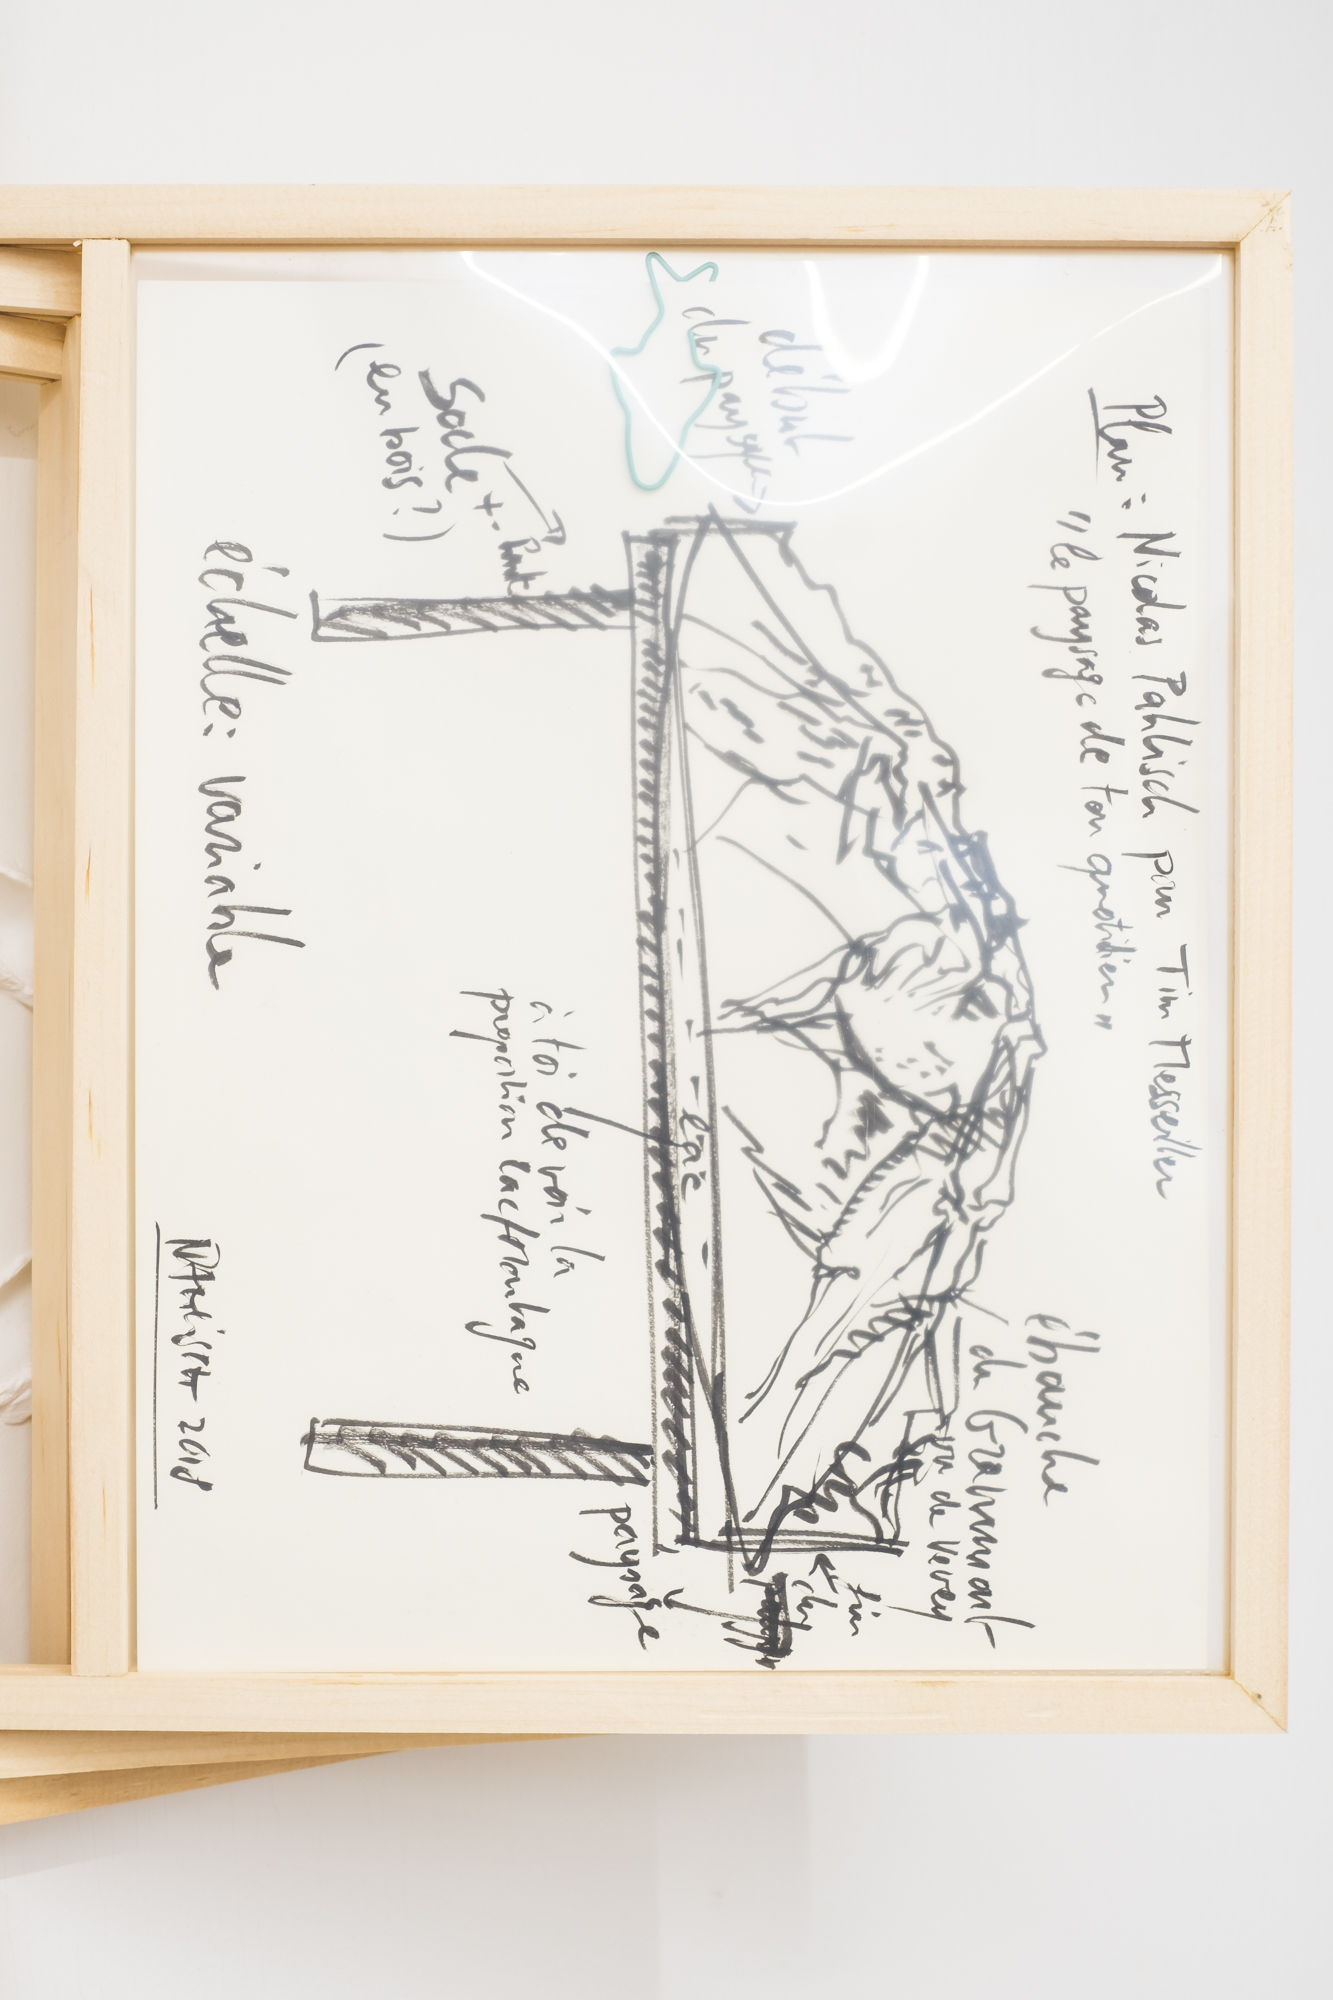 Plan: Nicolas Pahlisch pour Tim Messeiller
"le paysage de ton quotidien"
début
du paysage →
ébauche
du Grammont
vu de Vevey
fin
du
paysage
lac
Socle +-
(en bois?)
à toi de voir la
proportion lac/montagne
échelle: variable
PAHLISCH 2018